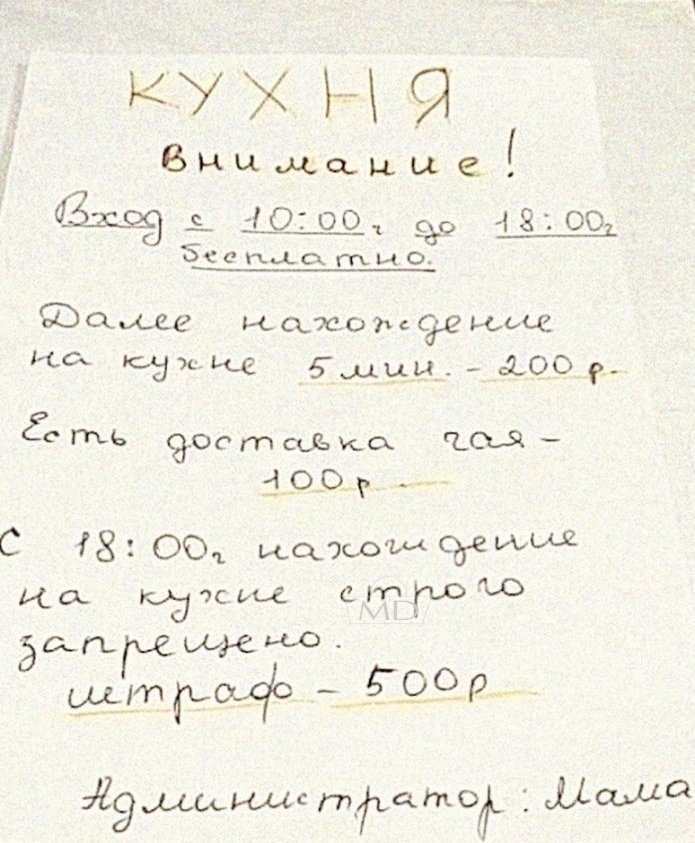 КУХНЯ
внимание!
Вход с 10:00ч до 18:00ч
бесплатно.
Далее нахождение
на кухне 5 мин. - 200 р.
Есть доставка чая -
100 р.
С 18:00ч нахождение
на кухне строго
MD
запрещено.
штраф - 500р
Администратор: Мама